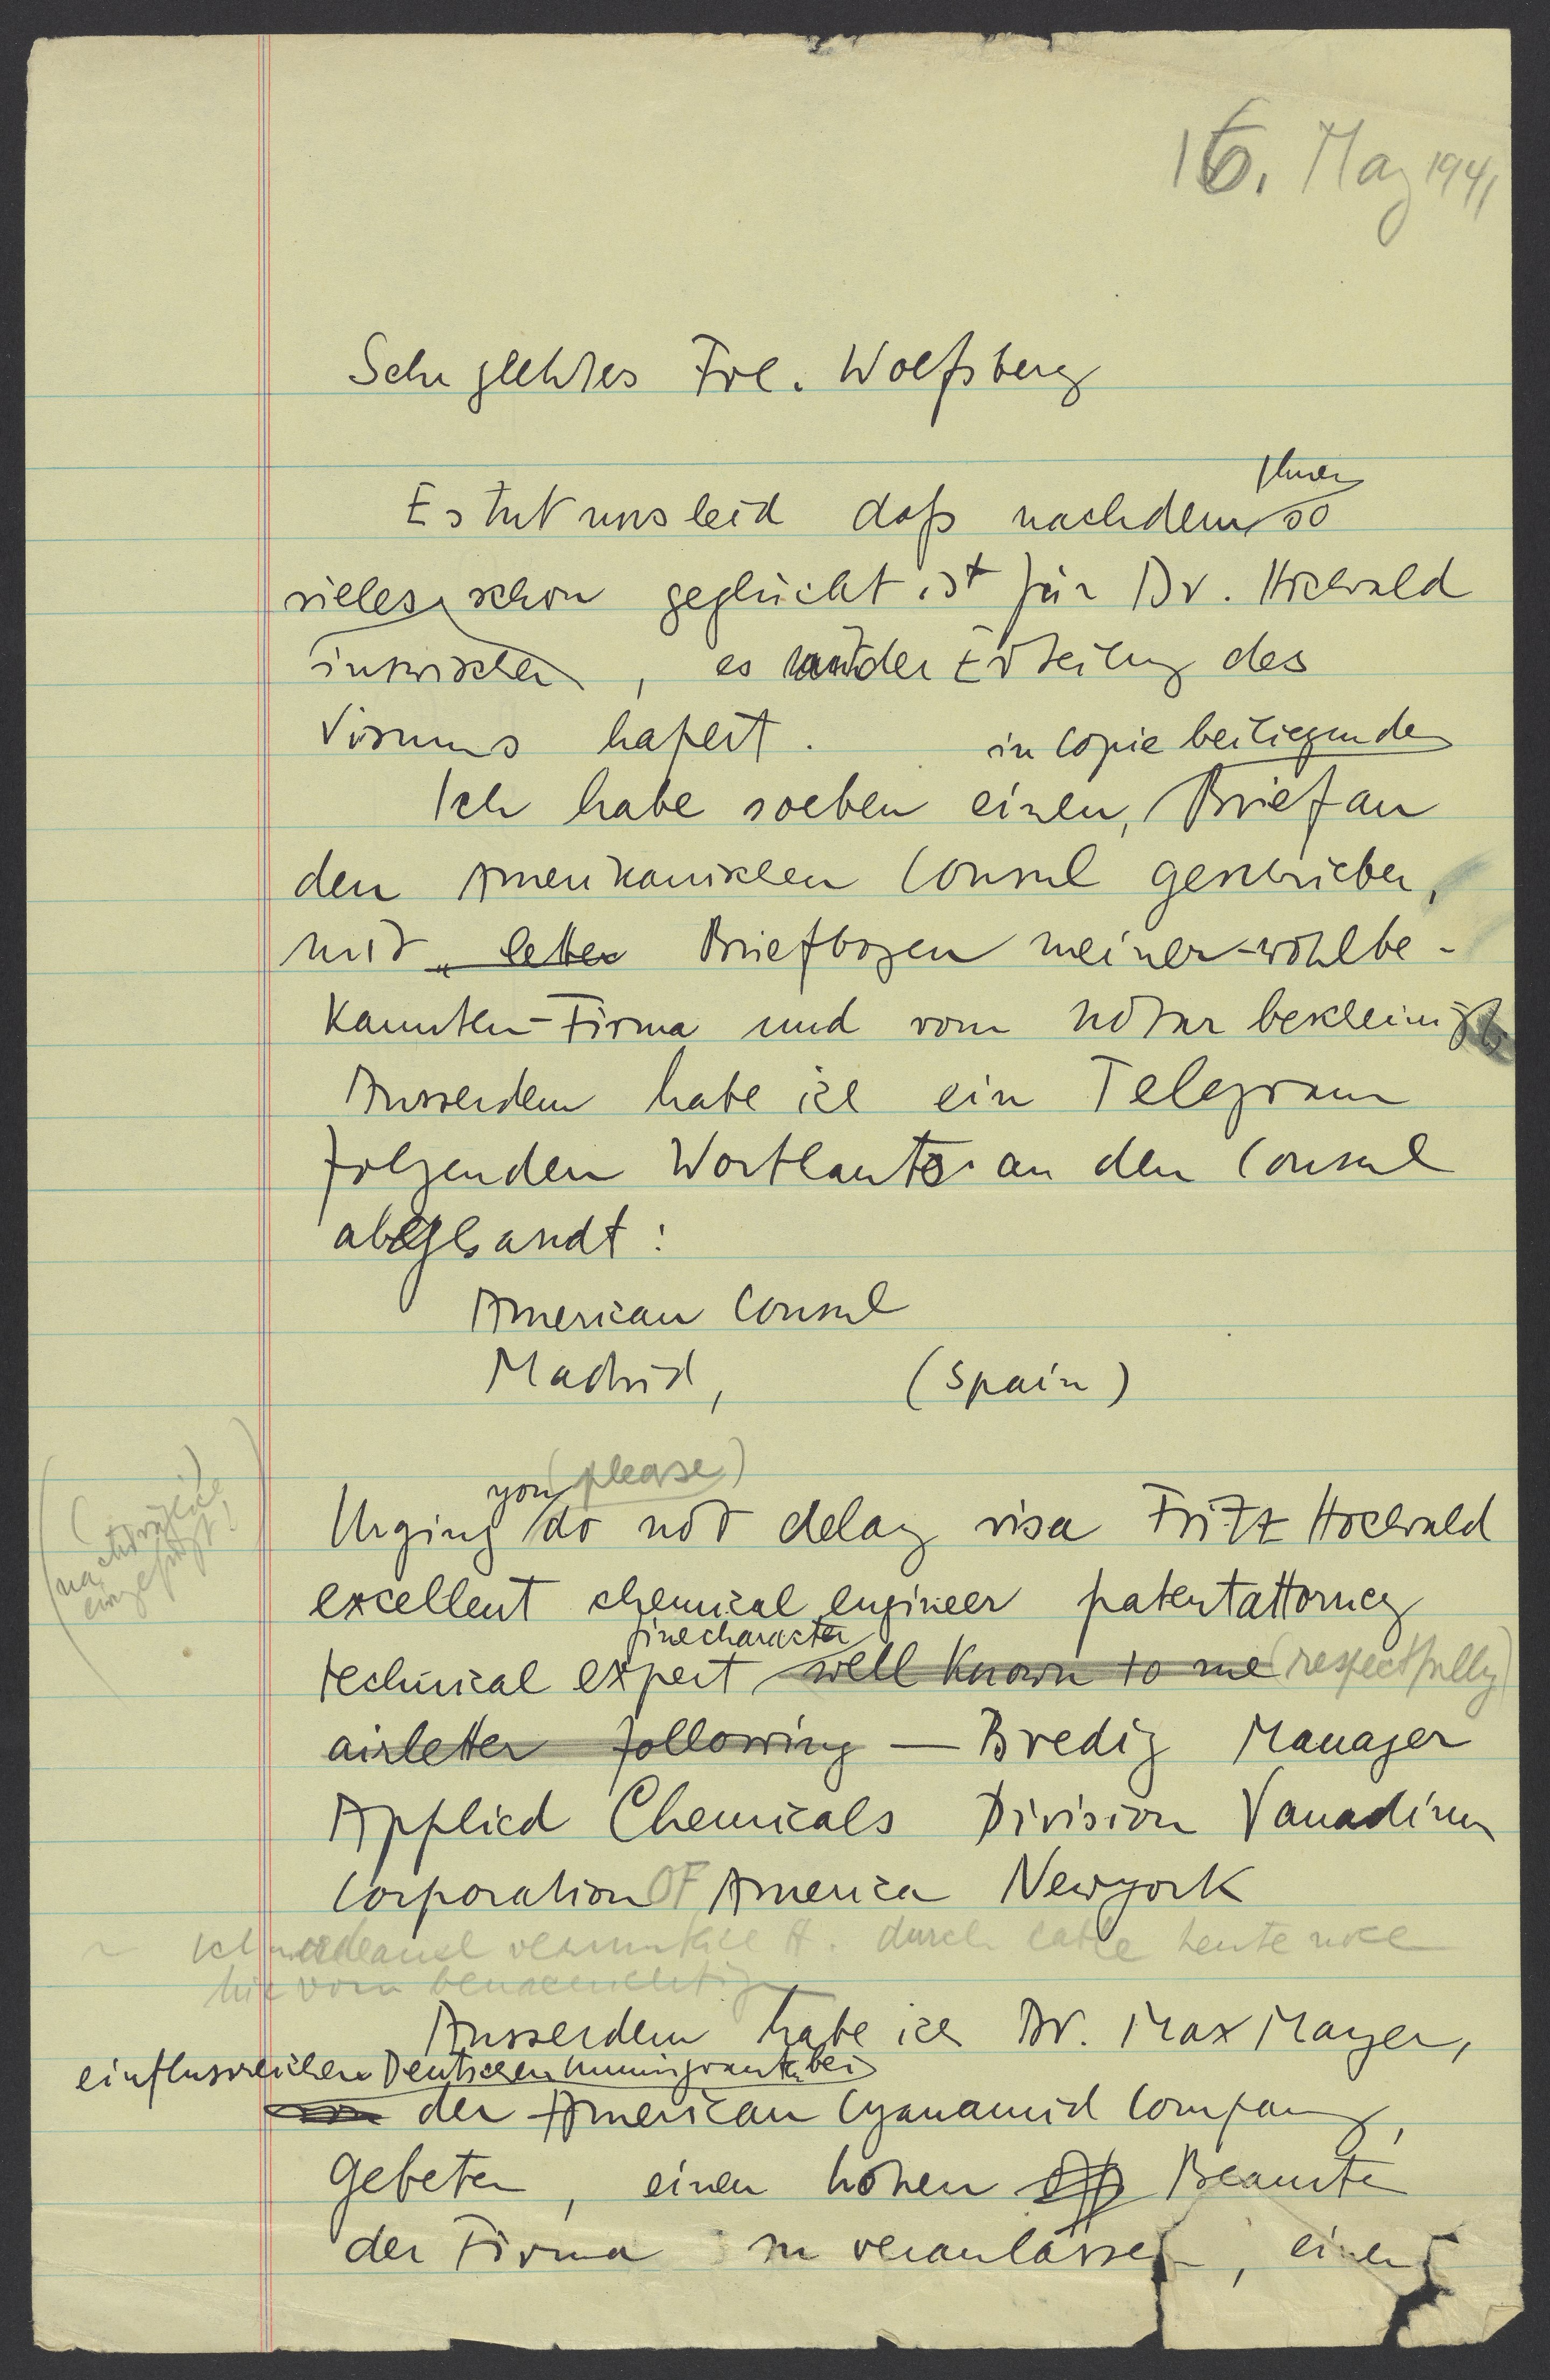 16. May 1941
Sehr geehrtes Frl. Wolfsberg
Es tut uns leid daß nachdem Ihnen so
vieles schon geglückt ist für Dr. Hochwald
inzwischen, es mit der Erteilung des
Visums hapert.
Ich habe soeben einen, in Copie beiliegenden Brief an
den Amerikanischen Consul geschrieben,
mit „letter Briefbogen meiner-wohlbe-
kannten-Firma und vom Notar bescheinigt.
Ausserdem habe ich ein Telegram
folgenden Wortlauts an den Consul
abgesandt:
American Consul
Madrid, (Spain)
you (please)
Urging do not delay visa Fritz Hochwald
(nachträglich
eingefügt!)
excellent chemical engineer patentattorney
fine character
technical expert well known to me (respectfully)
airletter following — Bredig Manager
Applied Chemicals Division Vanadium
Corporation OF America Newyork
durch cable heute noch
hievon
Ausserdem habe ich Dr. Max Mayer,
einflussreichen Deutschen Immigranten bei
der American Cyanamid Company,
gebeten, einen hohen Beamten
der Firma zu veranlassen, einen